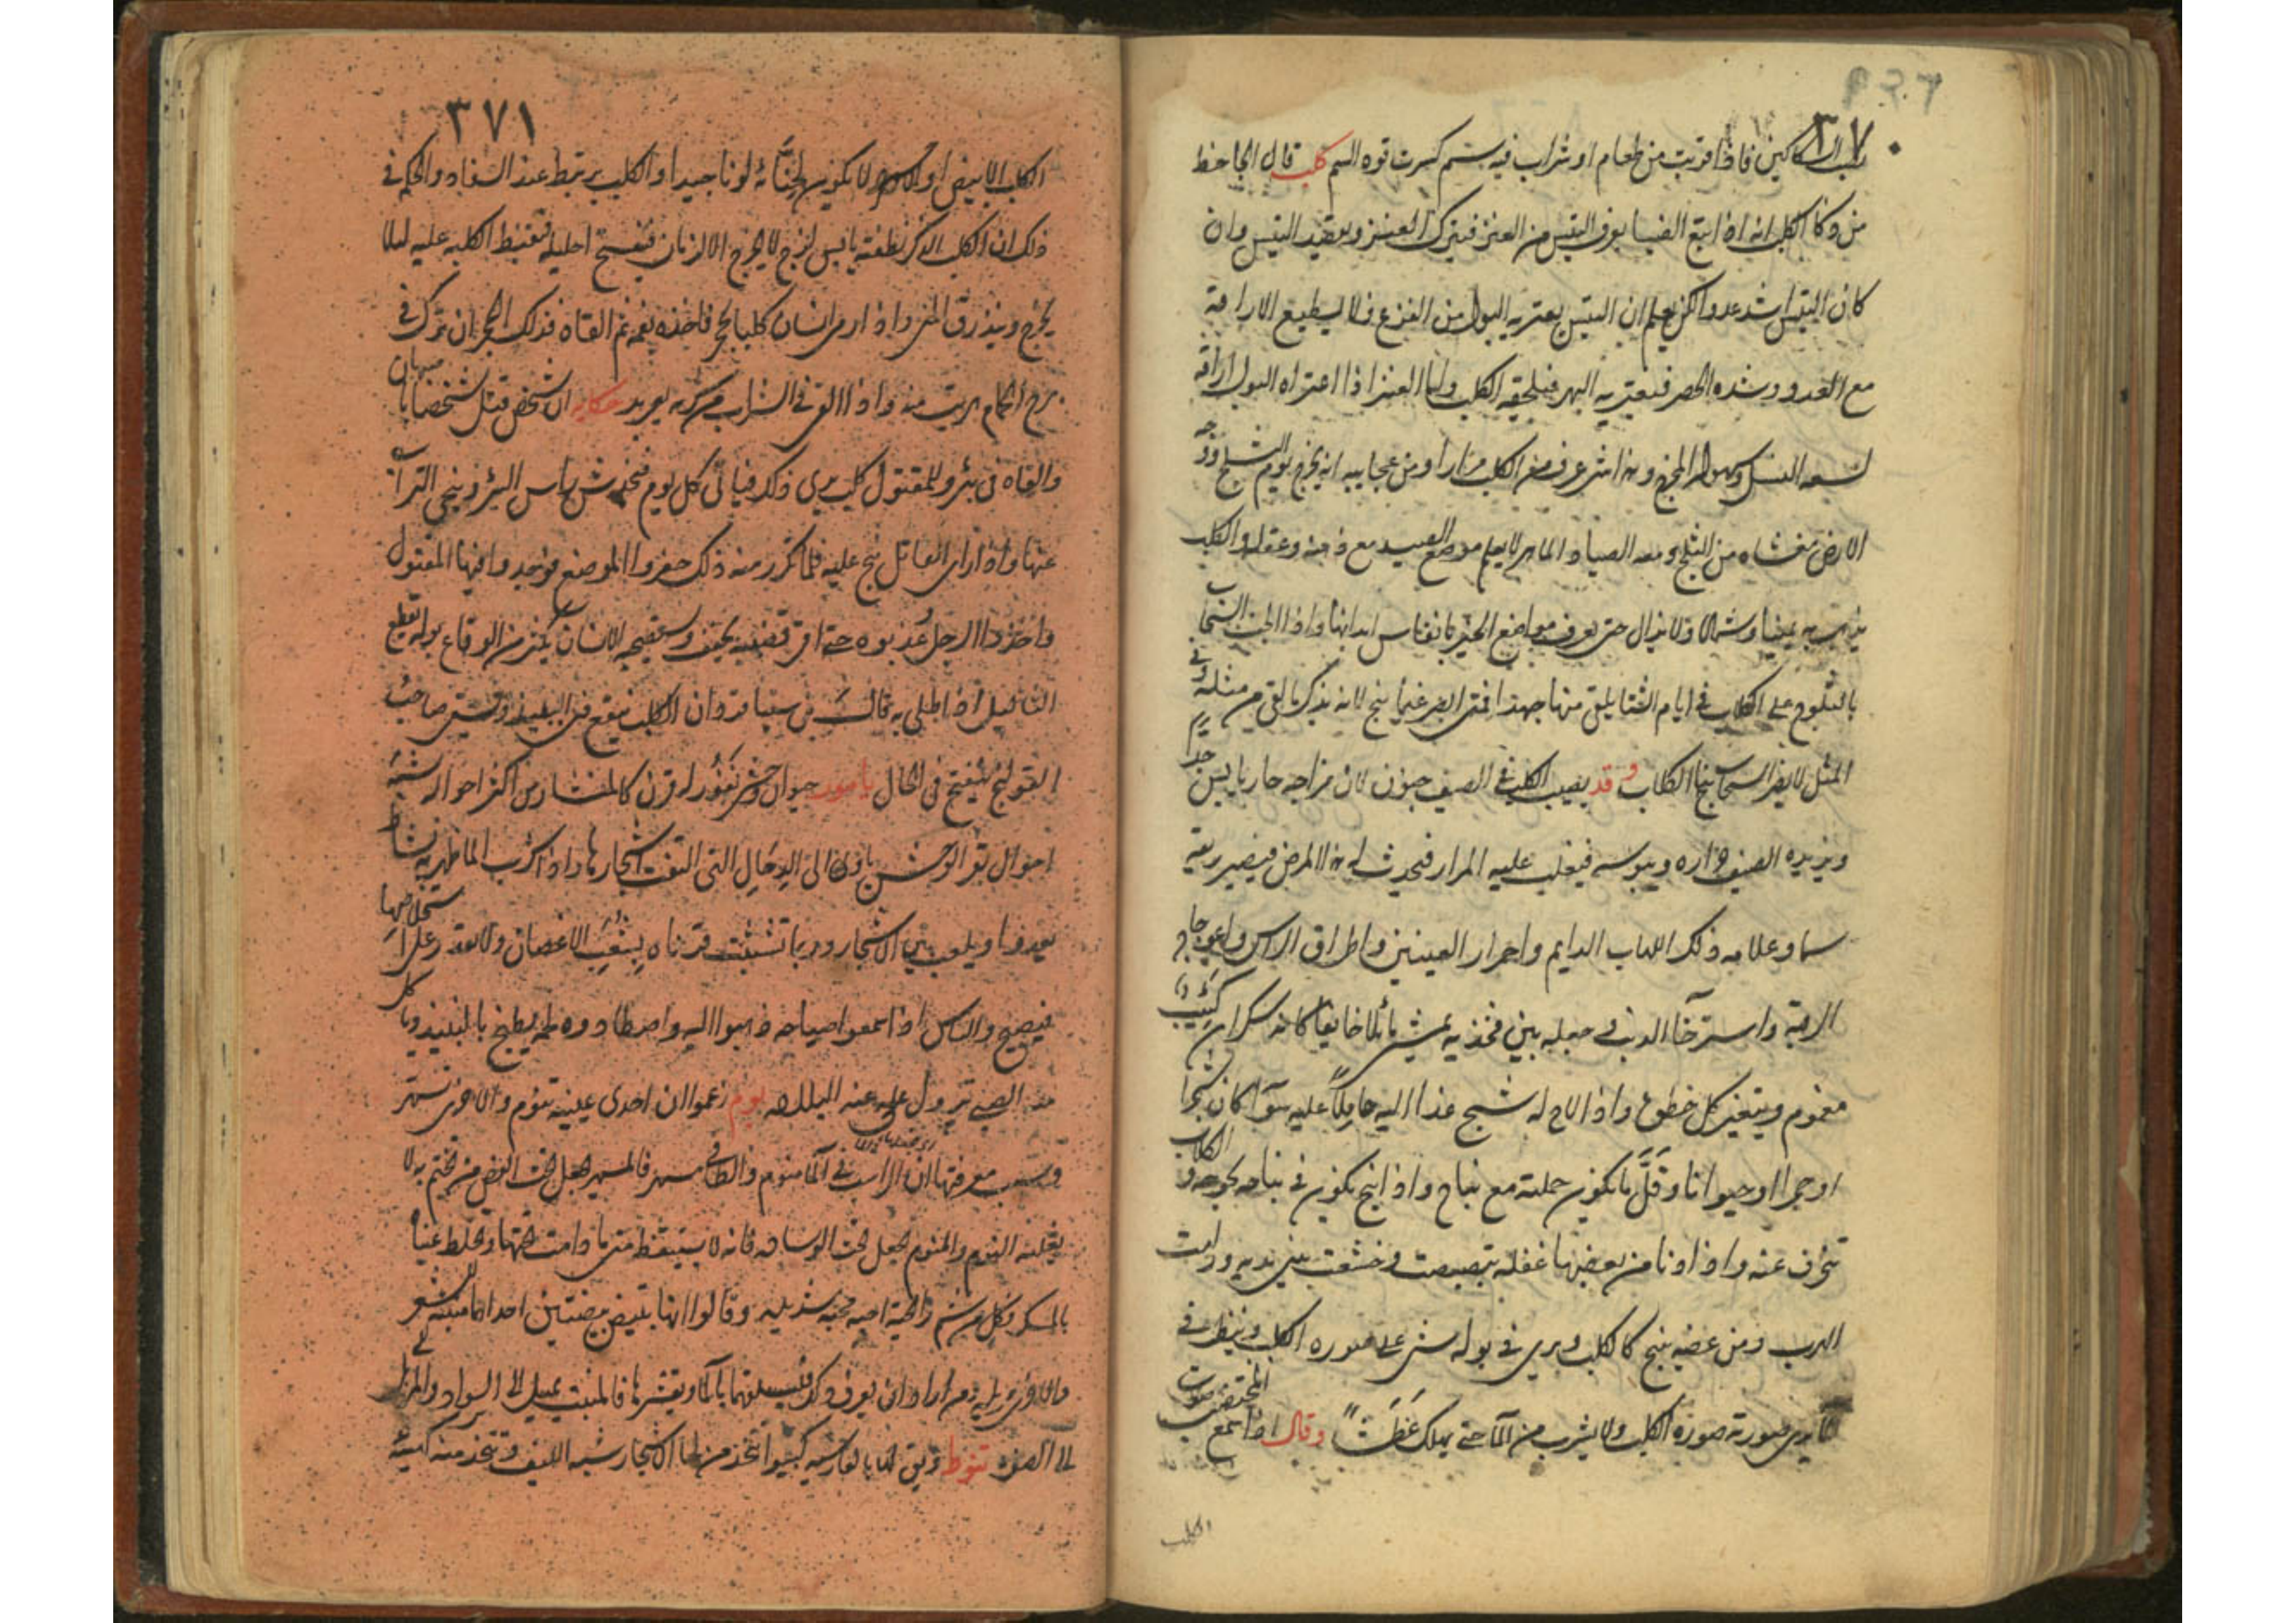 ٣٧٠
السكاكين فاذا قربت من طعام او شراب فيه سم كسرت قوه السم كلب قال الجاحظ
من ذكا الكلب انه اذا اتبع الضبا يعرف التيس من العنز فيترك العنز ويقصد التيس وان
كان التيس اشد عدوا لكن يعلم ان التيس يعتريه البول من الفزع فلا يستطيع الاراقة
مع العدو وشده الحصر فيعتريه البهر فيلحقه الكلب واما العنز اذا اعتراه البول اراقه
لسعه السبيل وسهولة المخرج وهذا شي عرف من الكلب مرارا ومن عجايبه انه يخرج يوم الثلج ووجه
الارض مغشاه من الثلج ومعه الصياد الماهر لا يعلم موضع الصيد مع ذهنه وعقله والكلب
يذهب به يمينا وشمالا ولا يزال حتى يعرف مواضع الحجر بانفاس ابدانها واذا الحت السحاب
بالثلوج على الكلاب في ايام الشتا يلقى منها جهدا فمتى ابصر غيما نبح لانه يذكر ما لقي من مثله وفي
المثل لا يضر السحاب نباح الكلاب وقد يصيب الكلب في الصيف جنون لان مزاجه حار يابس جدا
ويزيده الصيف حراره ويبوسه فيغلب عليه المرار فيحدث له هذا المرض فيصير ريقه
سما وعلامه ذلك اللهاب الدايم واحمرار العينين واطراق الراس واعوجاج
الرقبة واسترخا الذنب وجعله بين فخذيه يمشي مائلا خايفا كانه سكران كئيب
مغموم ويتعثر كل خطوة واذا لاح له شبح عدا اليه حاملا عليه سوآ كان شجرا
او حجرا او حيوانا وقل ما تكون حملته مع نباح واذا نبح تكون في نباحه بحوحه و الكلاب
تنحرف عنه واذا دنا من بعضها غفله تبصبصت وخشعت بين يديه ورامت
الهرب ومن عضه نبح كالكلب ويرى في بوله شي على صوره الكلب وينظر في
الماء يرى صورته صورة الكلب ولا يشرب من المآ حتى يهلك عطشا وقال اذا سمع
الكلب
٣٧١
الكلب الابيض او الاسود لا تكون لونا جيدا والكلب يرتبط عند السفاد والحكم في
ذلك ان الكلب الذكر نطفته يابس لزج لا يخرج الا لزمان فينفتح احليله فتضبط الكلبه عليه ليلا
يخرج وينذرق المنى واذا رمى انسان كلبا بحجر فاخذه بفمه ثم القاه فذلك الحجر ان ترك في
برج الحمام هربت منه واذا القي في الشراب من شربه يعربد حكايه ان شخص قتل شخصا باصبهان
والقاه في بئر وللمقتول كلب يرى ذلك فياتي كل يوم راس البئر وينحى التراب
عنها واذا راى القاتل نبح عليه فلما تكرر منه ذلك حفروا الموضع فوجدوا فيها المقتول
واخذوا الرجل عذبوه حتى اقر الانسان من الوقاع بوله يقطع
الثآليل اذا طلي به قال بن سينا قردان الكلب ينقع في النبيذ وسقى صاحب
القولنج ينفتح في الحال يامور حيوان وحشى نفور له قرن كالمنشار من اكثر احواله تشبه
احوال بقر الوحش ياوى الى الدحال التى التفت اشجارها واذا شرب الما ظهر به نشاط
يعدو ويلعب بين الاشجار وربما تشبثت قرناه بشعب الاغصان ولا يقدر على استخلاصها
فيصيح والناس اذا سمعوا صياحه ذهبوا اليه واصطادوه لحمه يطبخ بالنبيذ وياكل
منه الصبى تزول عنه البلاده بوم زعموا ان احدى عينيه تنوم والاخرى تسهر
وسبب معرفتها ان الراسب في المآ منوم والطافى مسهر فالمسهر يجعل تحت الفص من تختم به لا
يغلبه النوم والمنوم يجعل تحت الوساده فانه لا يستيقظ متى ما دامت تحتها وتخلط عينا
بالمسك وكل من شم رائحته احبه محبه شديده وقالوا انها تبيض بيضتين احداهما منبته للشعر
والاخرى مزيله ومن اراد ان يعرف ذلك بالمآ ويقشرها فالمنبت يميل الى السواد والمزيل
الى الصفره تنوط ويقال له بالفارسيه كيسو اتخذ من لحا الاشجار شبه الليف وتتخذ منه كهيئة